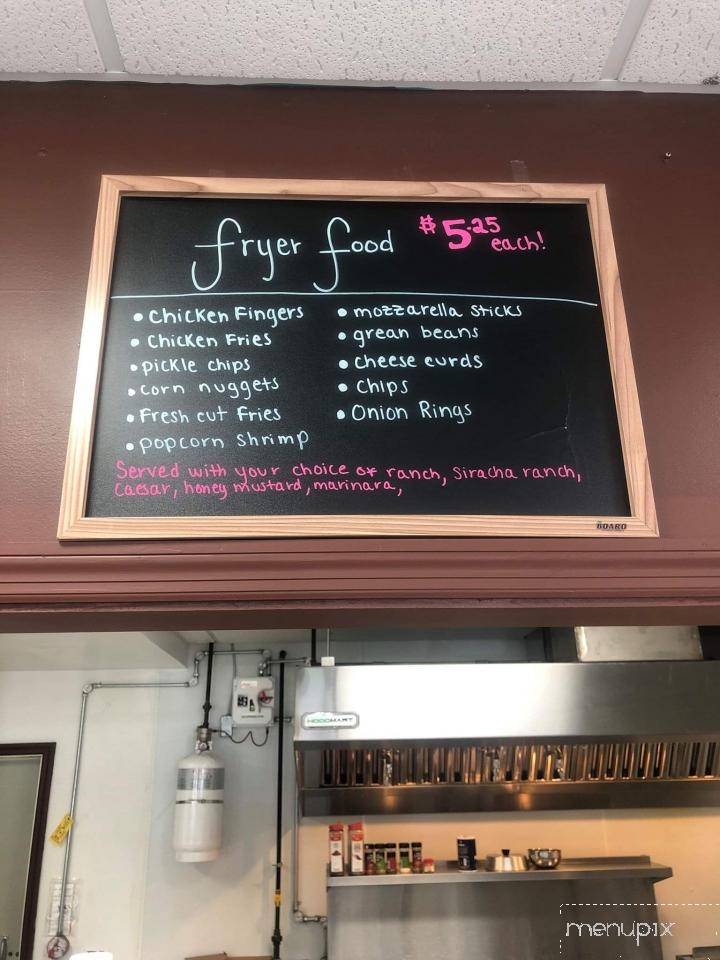 fryer food $5.25 each!
• Chicken Fingers
• Chicken Fries
• pickle chips
• corn nuggets
• Fresh cut Fries
• popcorn shrimp
• mozzarella sticks
• grean beans
• cheese curds
• Chips
• Onion Rings
Served with your choice of ranch, Siracha ranch,
Caesar, honey mustard, marinara,
BOARD
HOODMART
menupix